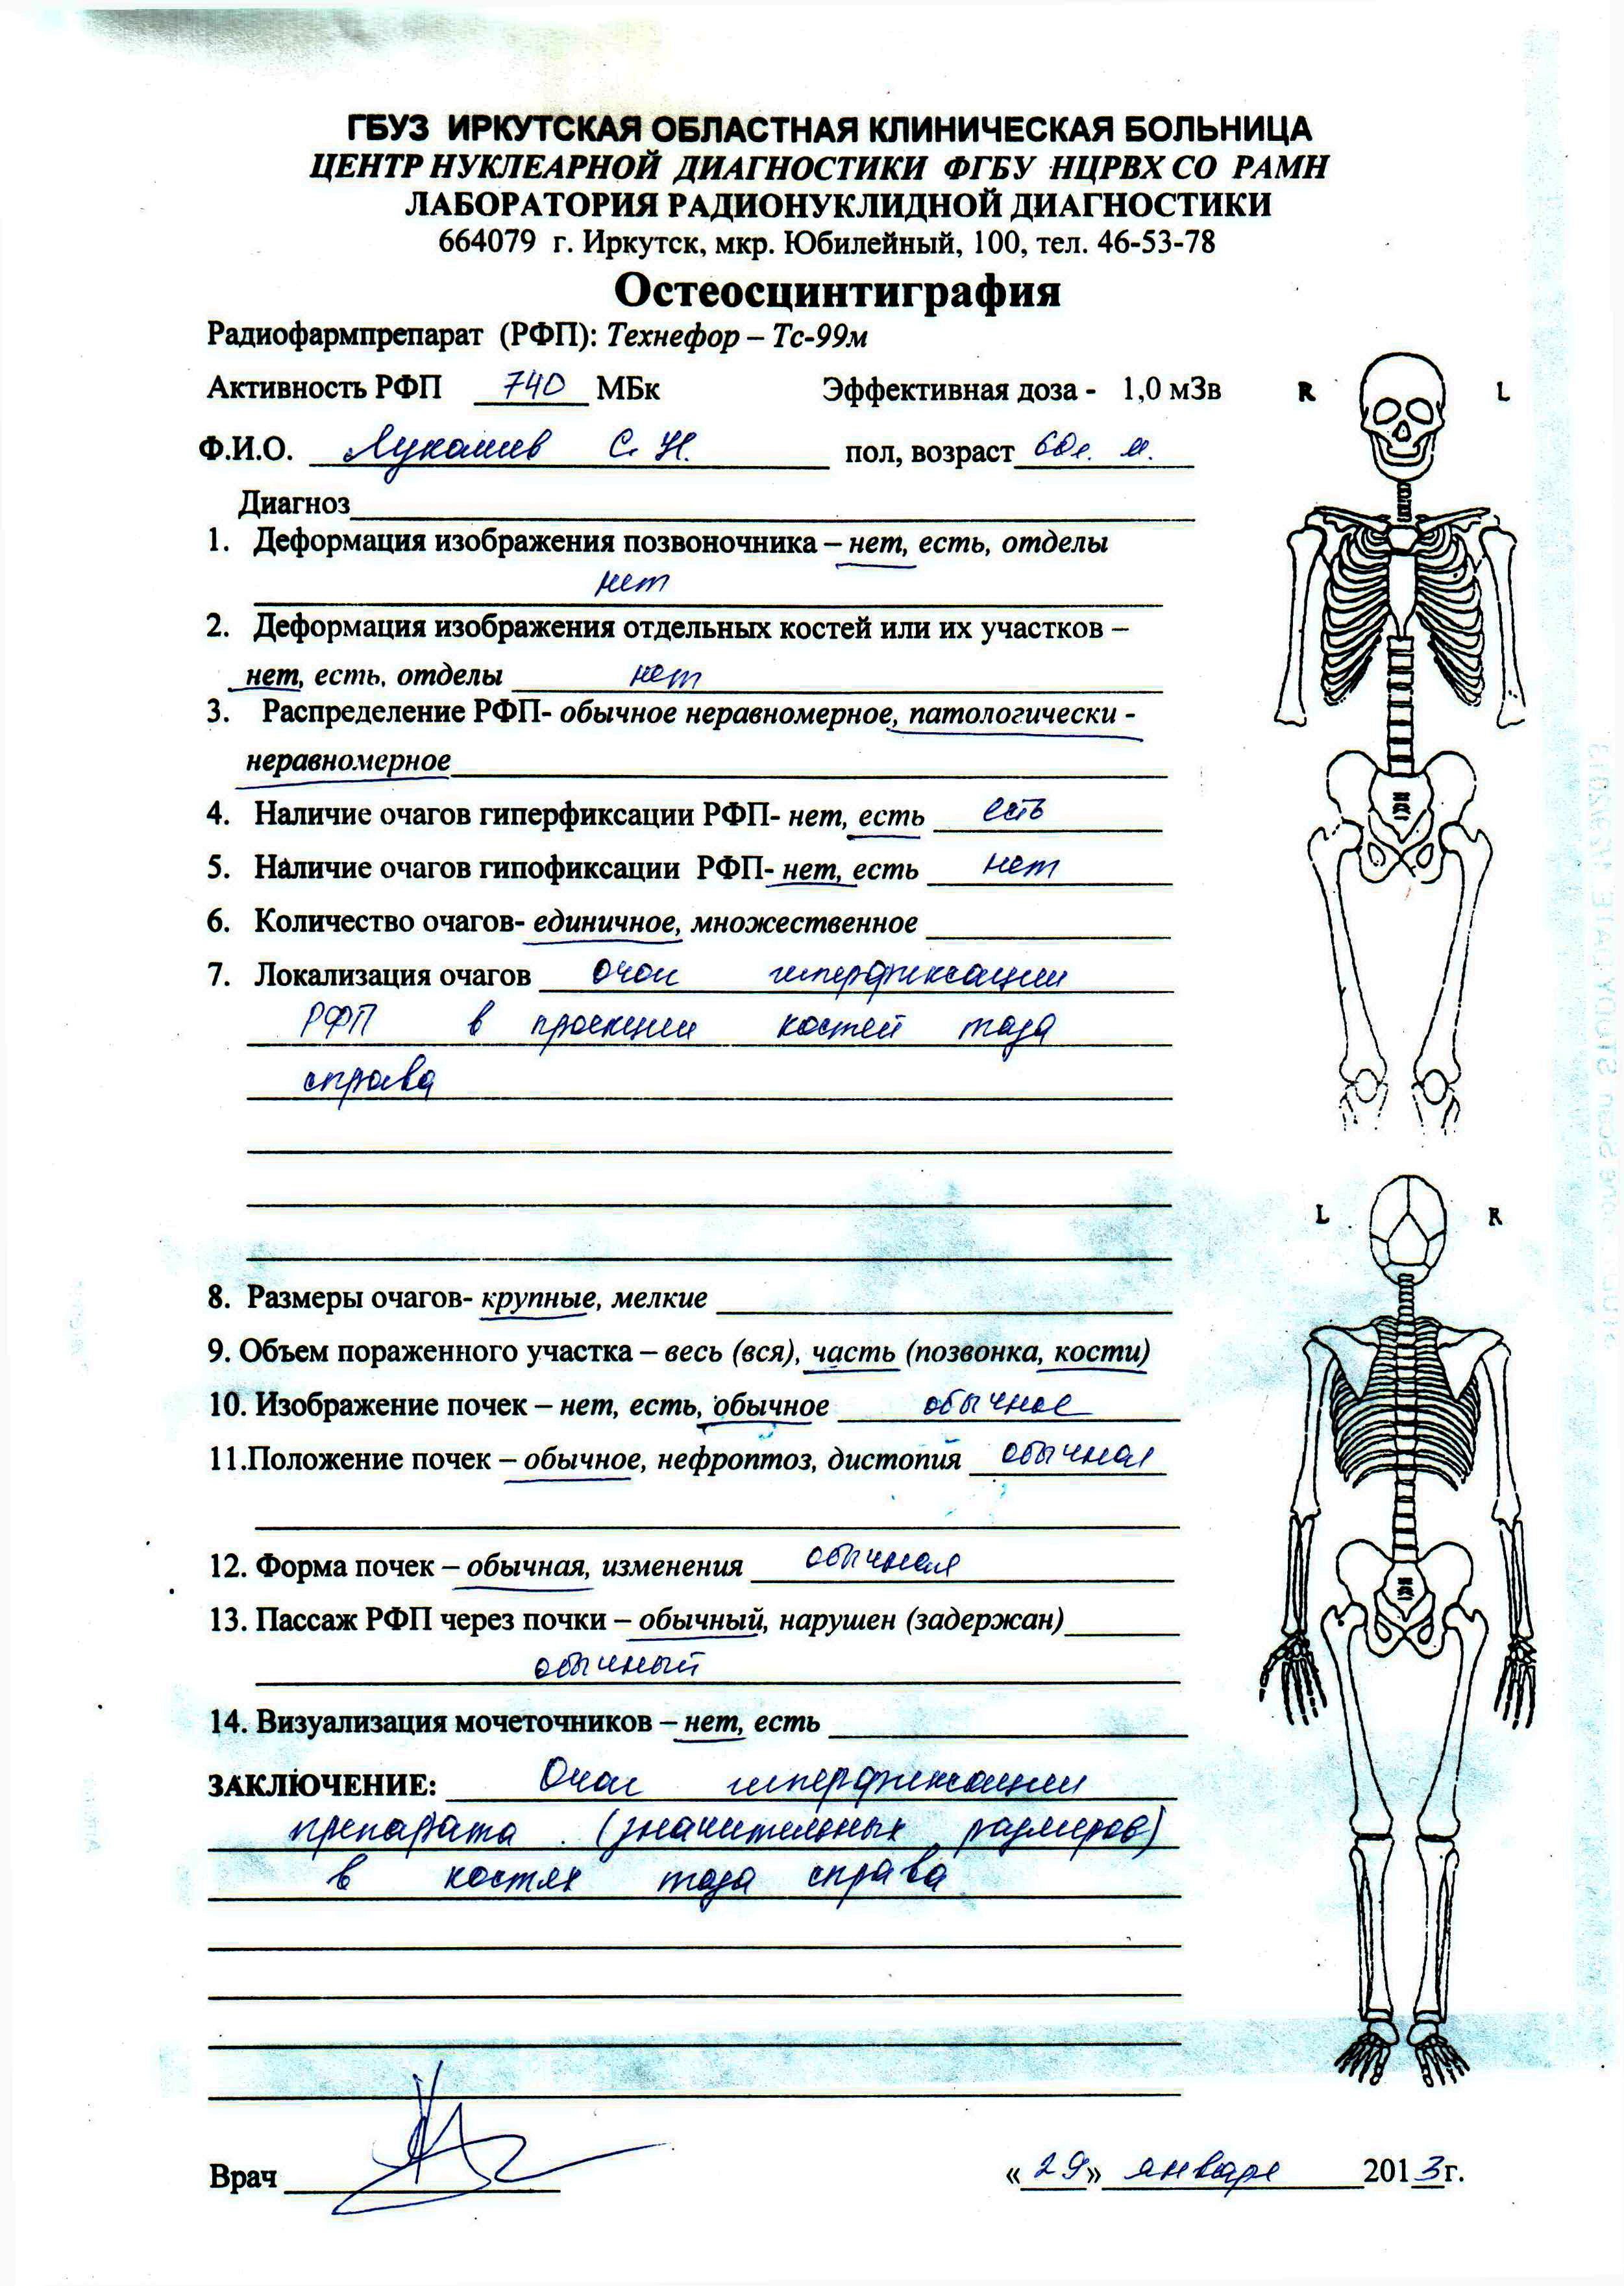 ГБУЗ ИРКУТСКАЯ ОБЛАСТНАЯ КЛИНИЧЕСКАЯ БОЛЬНИЦА
ЦЕНТР НУКЛЕАРНОЙ ДИАГНОСТИКИ ФГБУ НЦРВХ СО РАМН
ЛАБОРАТОРИЯ РАДИОНУКЛИДНОЙ ДИАГНОСТИКИ
664079 г. Иркутск, мкр. Юбилейный, 100, тел. 46-53-78
Остеосцинтиграфия
Радиофармпрепарат (РФП): Технефор – Тс-99м
Активность РФП 740 МБк Эффективная доза - 1,0 мЗв
R L
Ф.И.О. С. Н. пол, возраст 60л. м.
Диагноз
1. Деформация изображения позвоночника – нет, есть, отделы
нет
2. Деформация изображения отдельных костей или их участков –
нет, есть, отделы нет
3. Распределение РФП- обычное неравномерное, патологически -
неравномерное
4. Наличие очагов гиперфиксации РФП- нет, есть есть
5. Наличие очагов гипофиксации РФП- нет, есть нет
6. Количество очагов- единичное, множественное
7. Локализация очагов очаг гиперфиксации
РФП в проекции костей таза
справа
L R
8. Размеры очагов- крупные, мелкие
9. Объем пораженного участка – весь (вся), часть (позвонка, кости)
10. Изображение почек – нет, есть, обычное обычное
11.Положение почек – обычное, нефроптоз, дистопия обычная
12. Форма почек – обычная, изменения обычная
13. Пассаж РФП через почки – обычный, нарушен (задержан)
обычный
14. Визуализация мочеточников – нет, есть
ЗАКЛЮЧЕНИЕ: Очаг гиперфиксации
препарата (значительных размеров)
в костях таза справа
Врач «29» января 2013г.